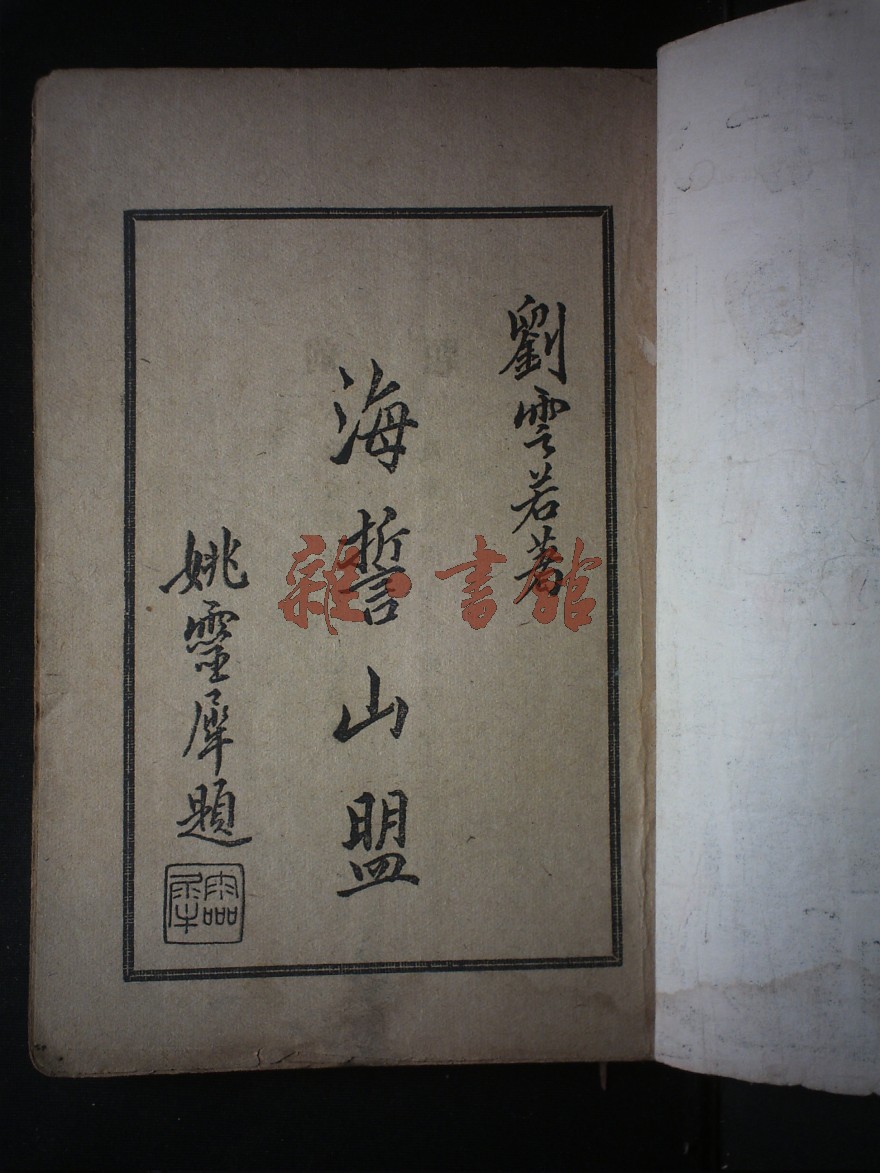 劉雲若著
海誓山盟
姚靈犀題
靈犀
雜·書館